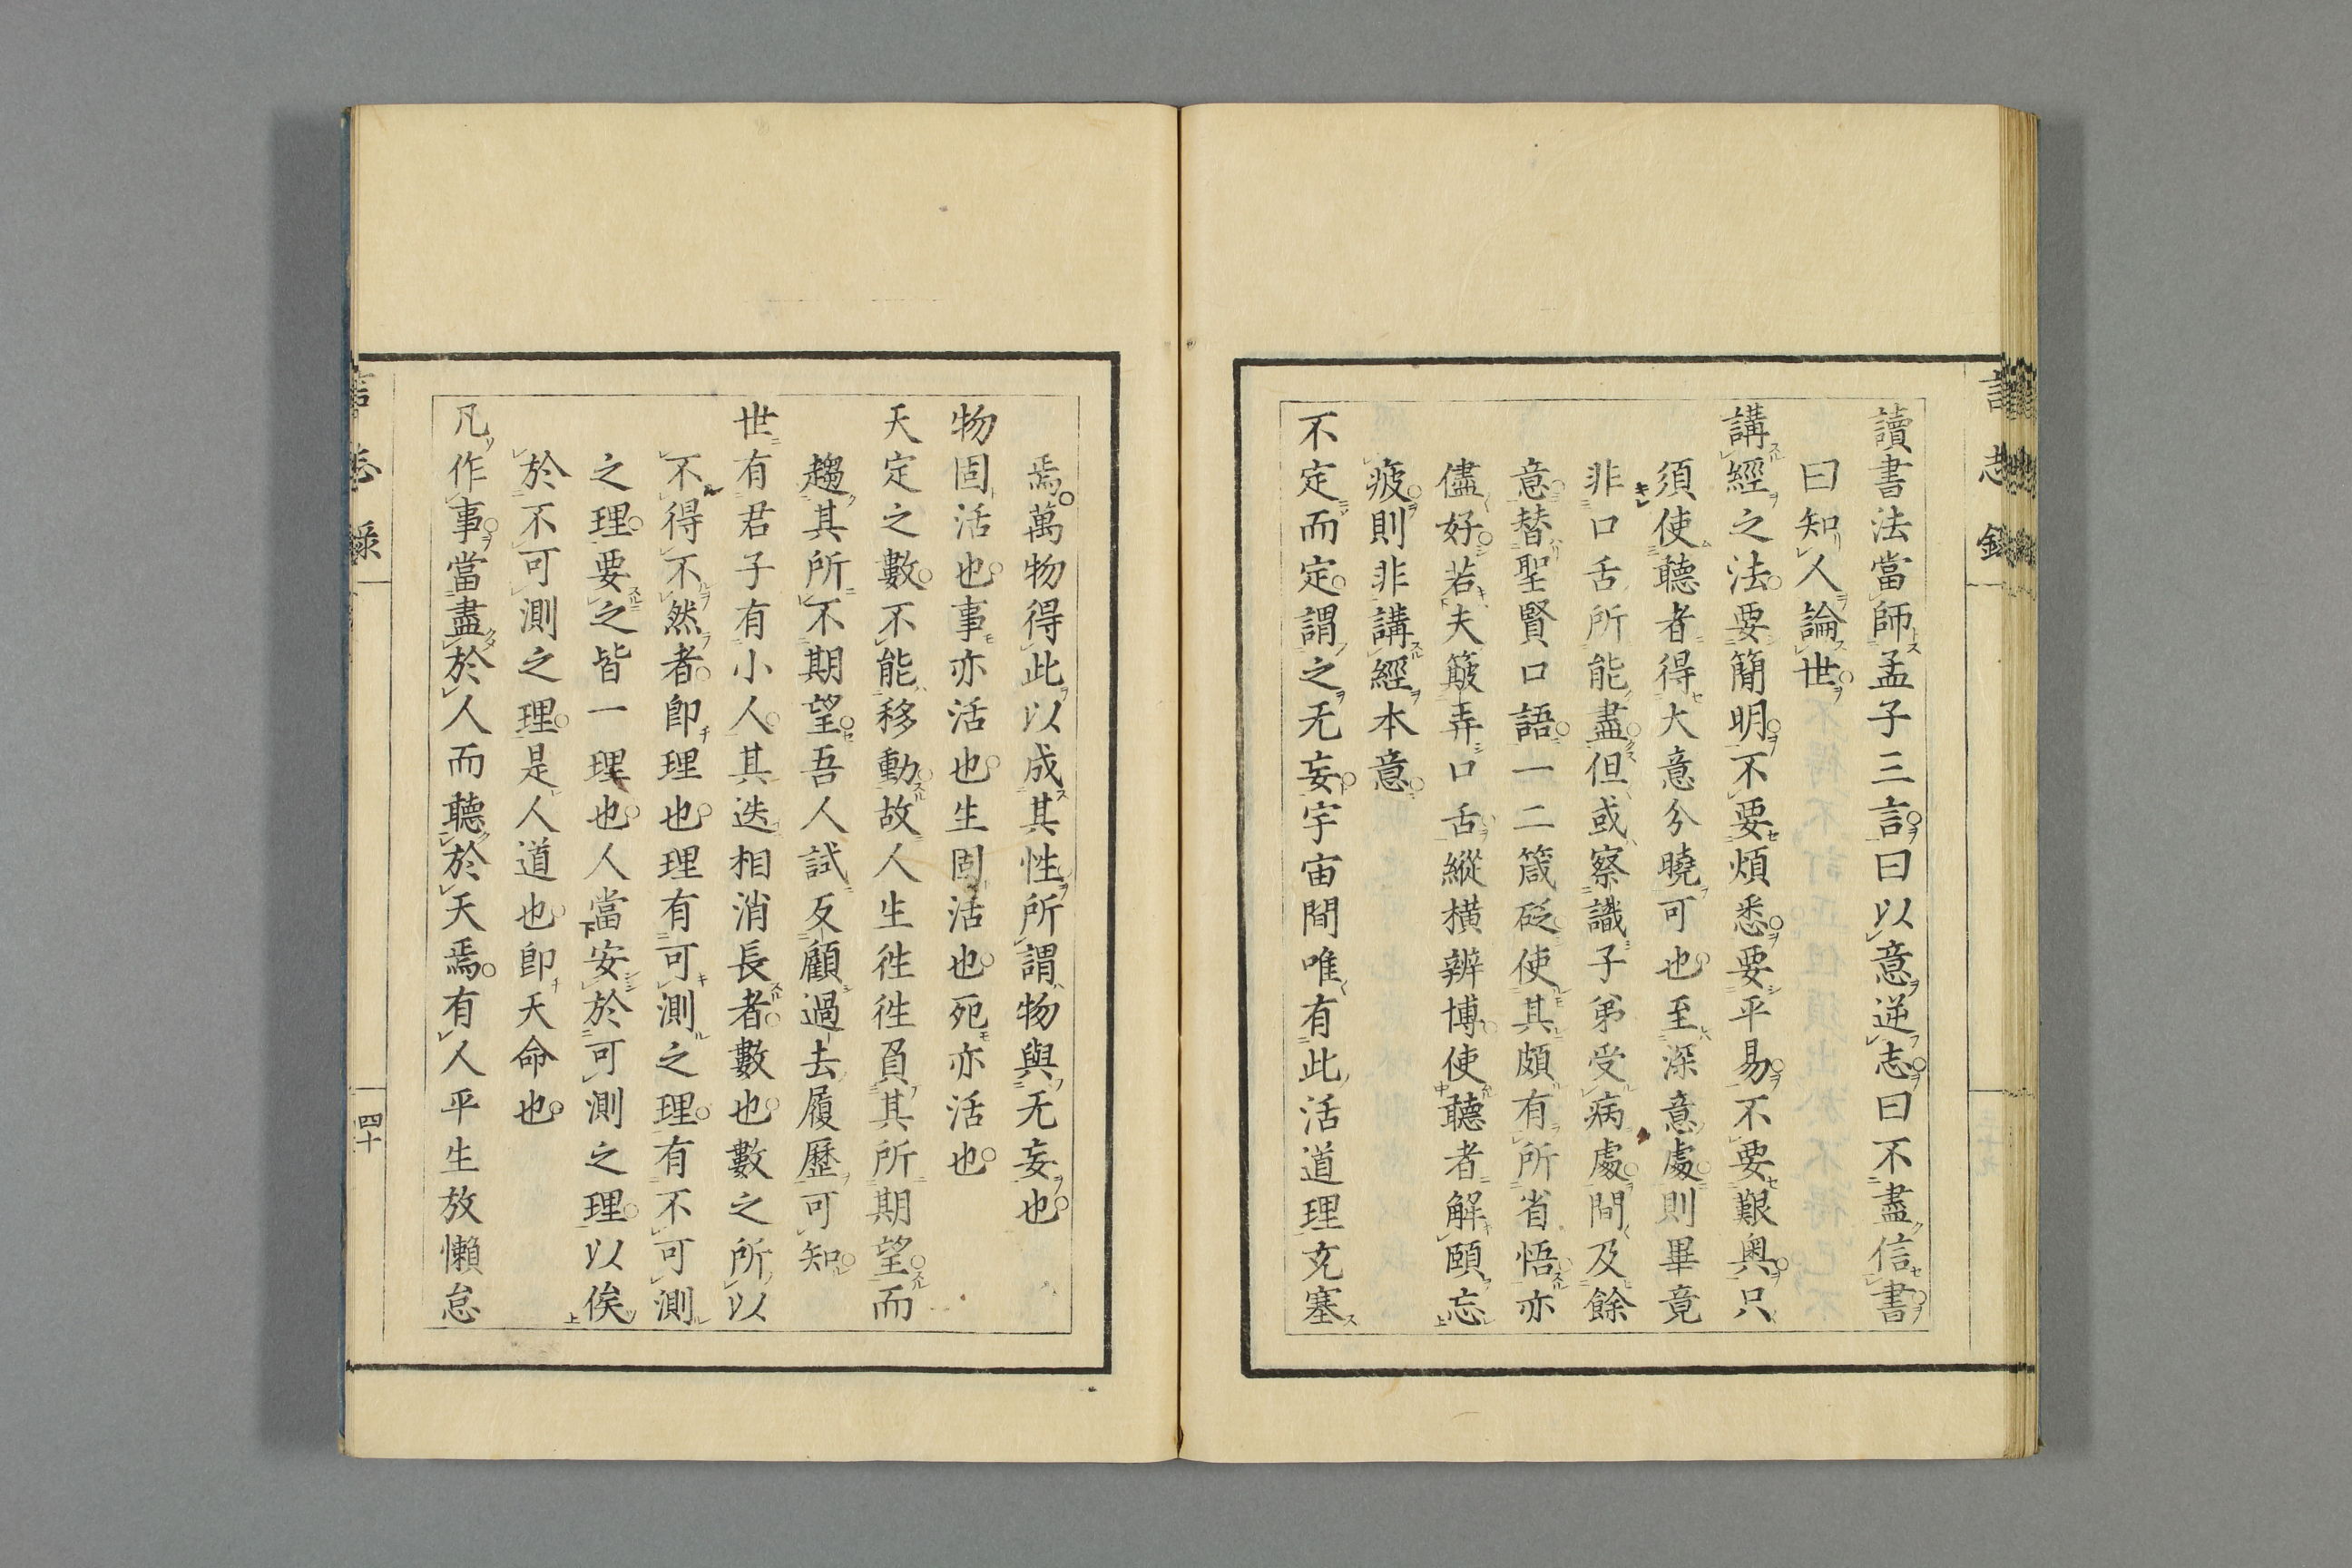 讀書法當師孟子三言曰以意逆志曰不盡信書
曰知人論世
講經之法要簡明不要煩悉要平易不要艱奧只
須使聽者得大意分曉可也至深意處則畢竟
非口舌所能盡但或察識子弟受病處間及餘
意替聖賢口語一二箴砭使其頗有所省悟亦
儘好若夫簸弄口舌縱横辨博使聽者解頤忘
疲則非講經本意
不定而定謂之无妄宇宙間唯有此活道理充塞
焉萬物得此以成其性所謂物與无妄也
物固活也事亦活也生固活也死亦活也
天定之數不能移動故人生徃徃負其所期望而
趨其所不期望吾人試反顧過去履歷可知
世有君子有小人其迭相消長者數也數之所以
不得不然者即理也理有可測之理有不可測
之理要之皆一理也人當安於可測之理以俟
於不可測之理是人道也即天命也
凡作事當盡於人而聽於天焉有人平生放懶怠
言志錄
四十